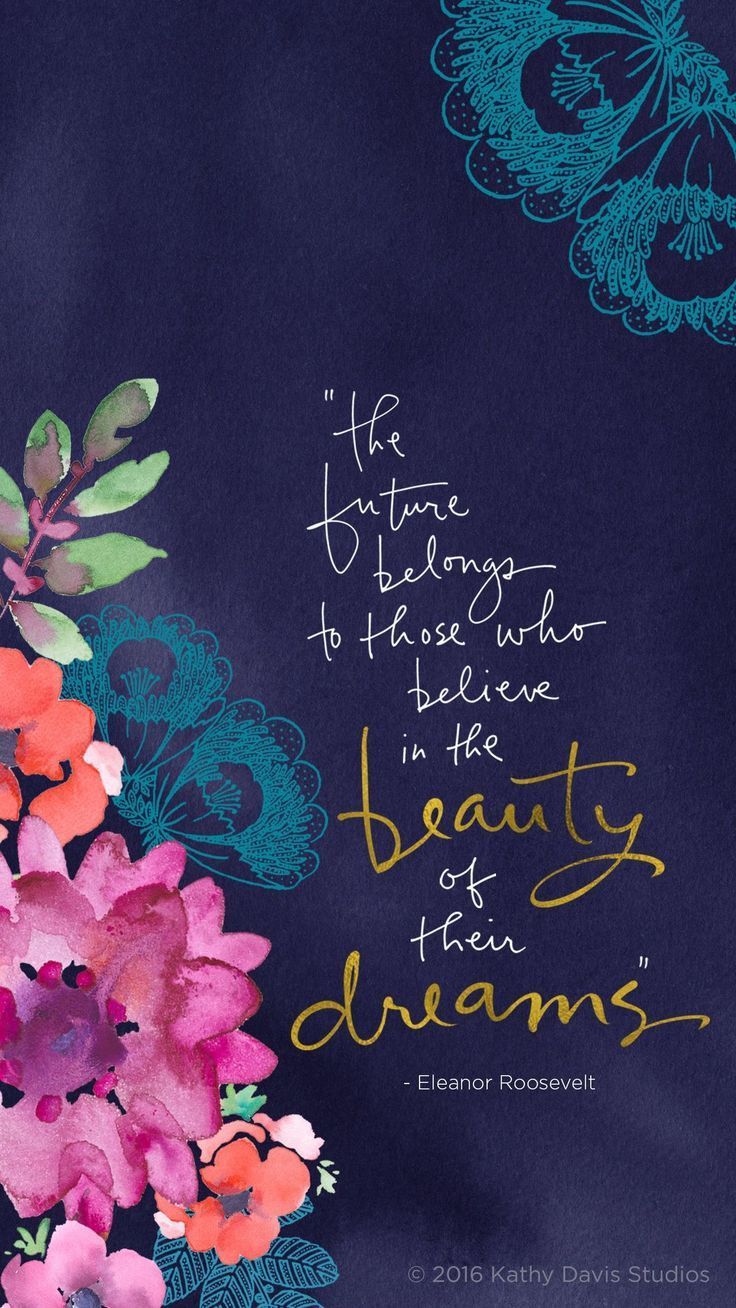 "the
future
belongs
to those who
believe
in the
beauty
of
their
dreams"
- Eleanor Roosevelt
© 2016 Kathy Davis Studios